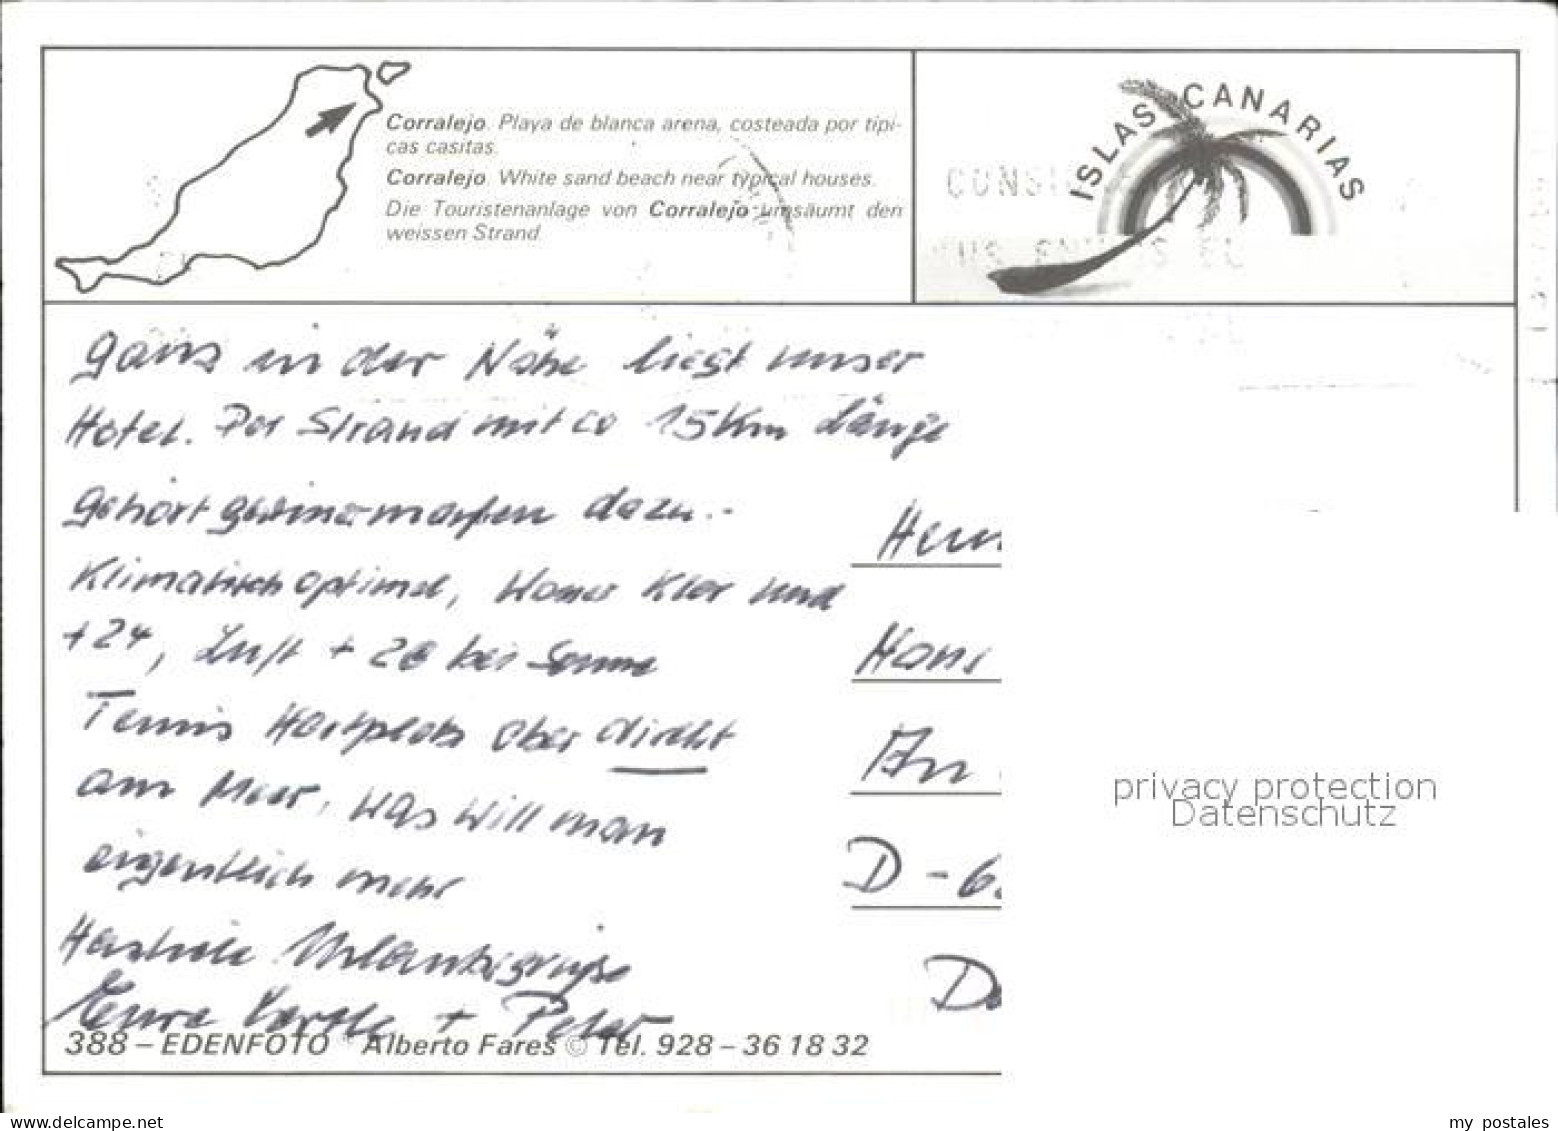 Corralejo. Playa de blanca arena, costeada por tipi-
cas casitas.
Corralejo. White sand beach near typical houses.
Die Touristenanlage von Corralejo umsäumt den
weissen Strand.
ISLAS CANARIAS
CONSI
ganz in der Nähe liegt unser
Hotel. Der Strand mit ca 15 Km Länge
gehört gewissermaßen dazu.-
Klimatisch optimal, Wasser klar und
+24, Luft + 26 bei Sonne
Tennis Hartplatz aber direkt
am Meer, was will man
eigentlich mehr
Herzliche Urlaubsgrüße
Eure + Peter
Hans
An
D - 6
388 – EDENFOTO Alberto Fares © Tel. 928 – 36 18 32
privacy protection
Datenschutz
www.delcampe.net
my_postales